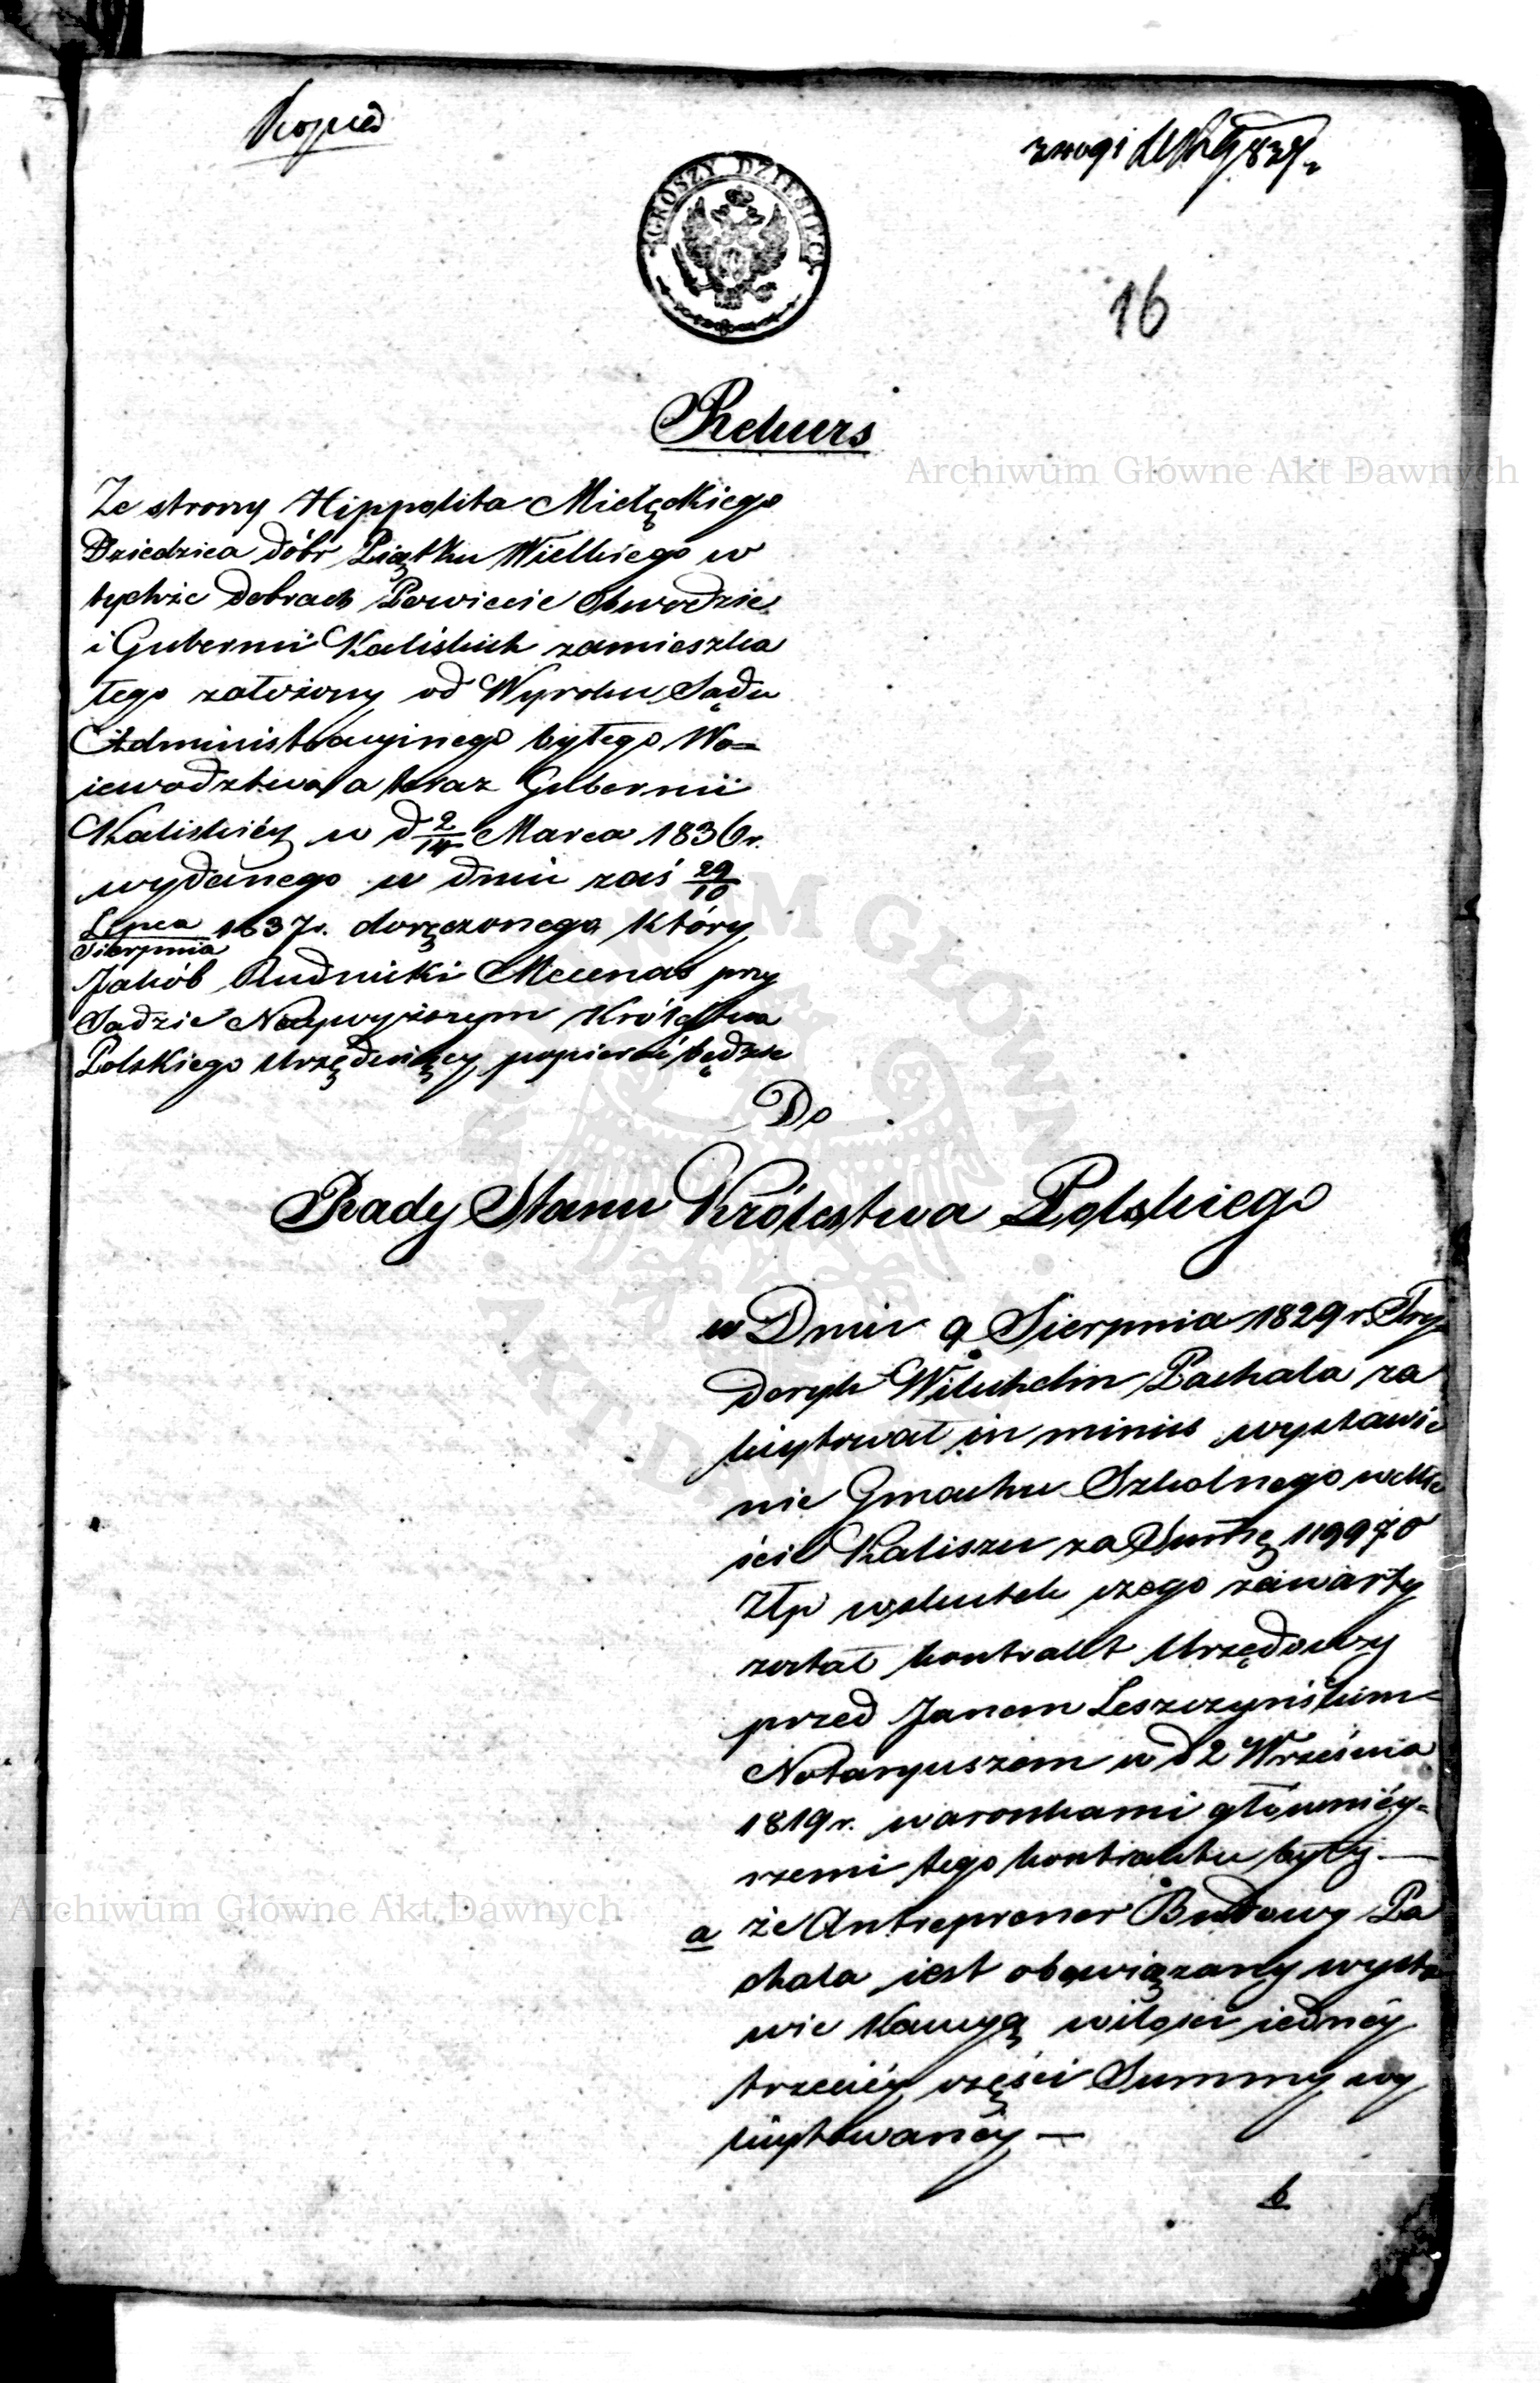 Kopia
16
GROSZY DZIESIĘĆ
Rekurs
Ze strony Hippolita Mielęckiego
Dziedzica dóbr Piątku Wielkiego w
tychże dobrach Powiecie Obwodzie
i Gubernii Kaliskich zamieszka
łego założony od Wyroku Sądu
Administracyinego byłego Wo=
iewodztwa a teraz Gubernii
Kaliskiéy w d 2/14 Marca 1836 r.
wydanego w dniu zaś 29/10
Lipca/Sierpnia 1837 r. doręczonego który
Jakób Rudnicki Mecenas przy
Sądzie Naywyższym Królestwa
Polskiego Urzęduiący popierać będzie
Do
Rady Stanu Królestwa Polskiego
w Dniu 9 Sierpnia 1829 r. Fry
deryk Wilhelm Pachala za
licytował in minus wystawie
nie Gmachu Szkolnego w Mie
ście Kaliszu za Summę 119970
Złp wskutek czego zawarty
został kontrakt Urzędowy
przed Janem Leszczyńskim=
Notaryuszem w d 2 Września
1819 r. warunkami główniéy=
szemi tego kontraktu były —
a że Antreprener Budowy Pa
chala jest obowiązany wysta
wić Kaucyą wilości iednéy
trzeciéy części Summy wy
licytowanéy —
b
Archiwum Główne Akt Dawnych
Archiwum Główne Akt Dawnych
ARCHIWUM GŁÓWNE AKT DAWNYCH